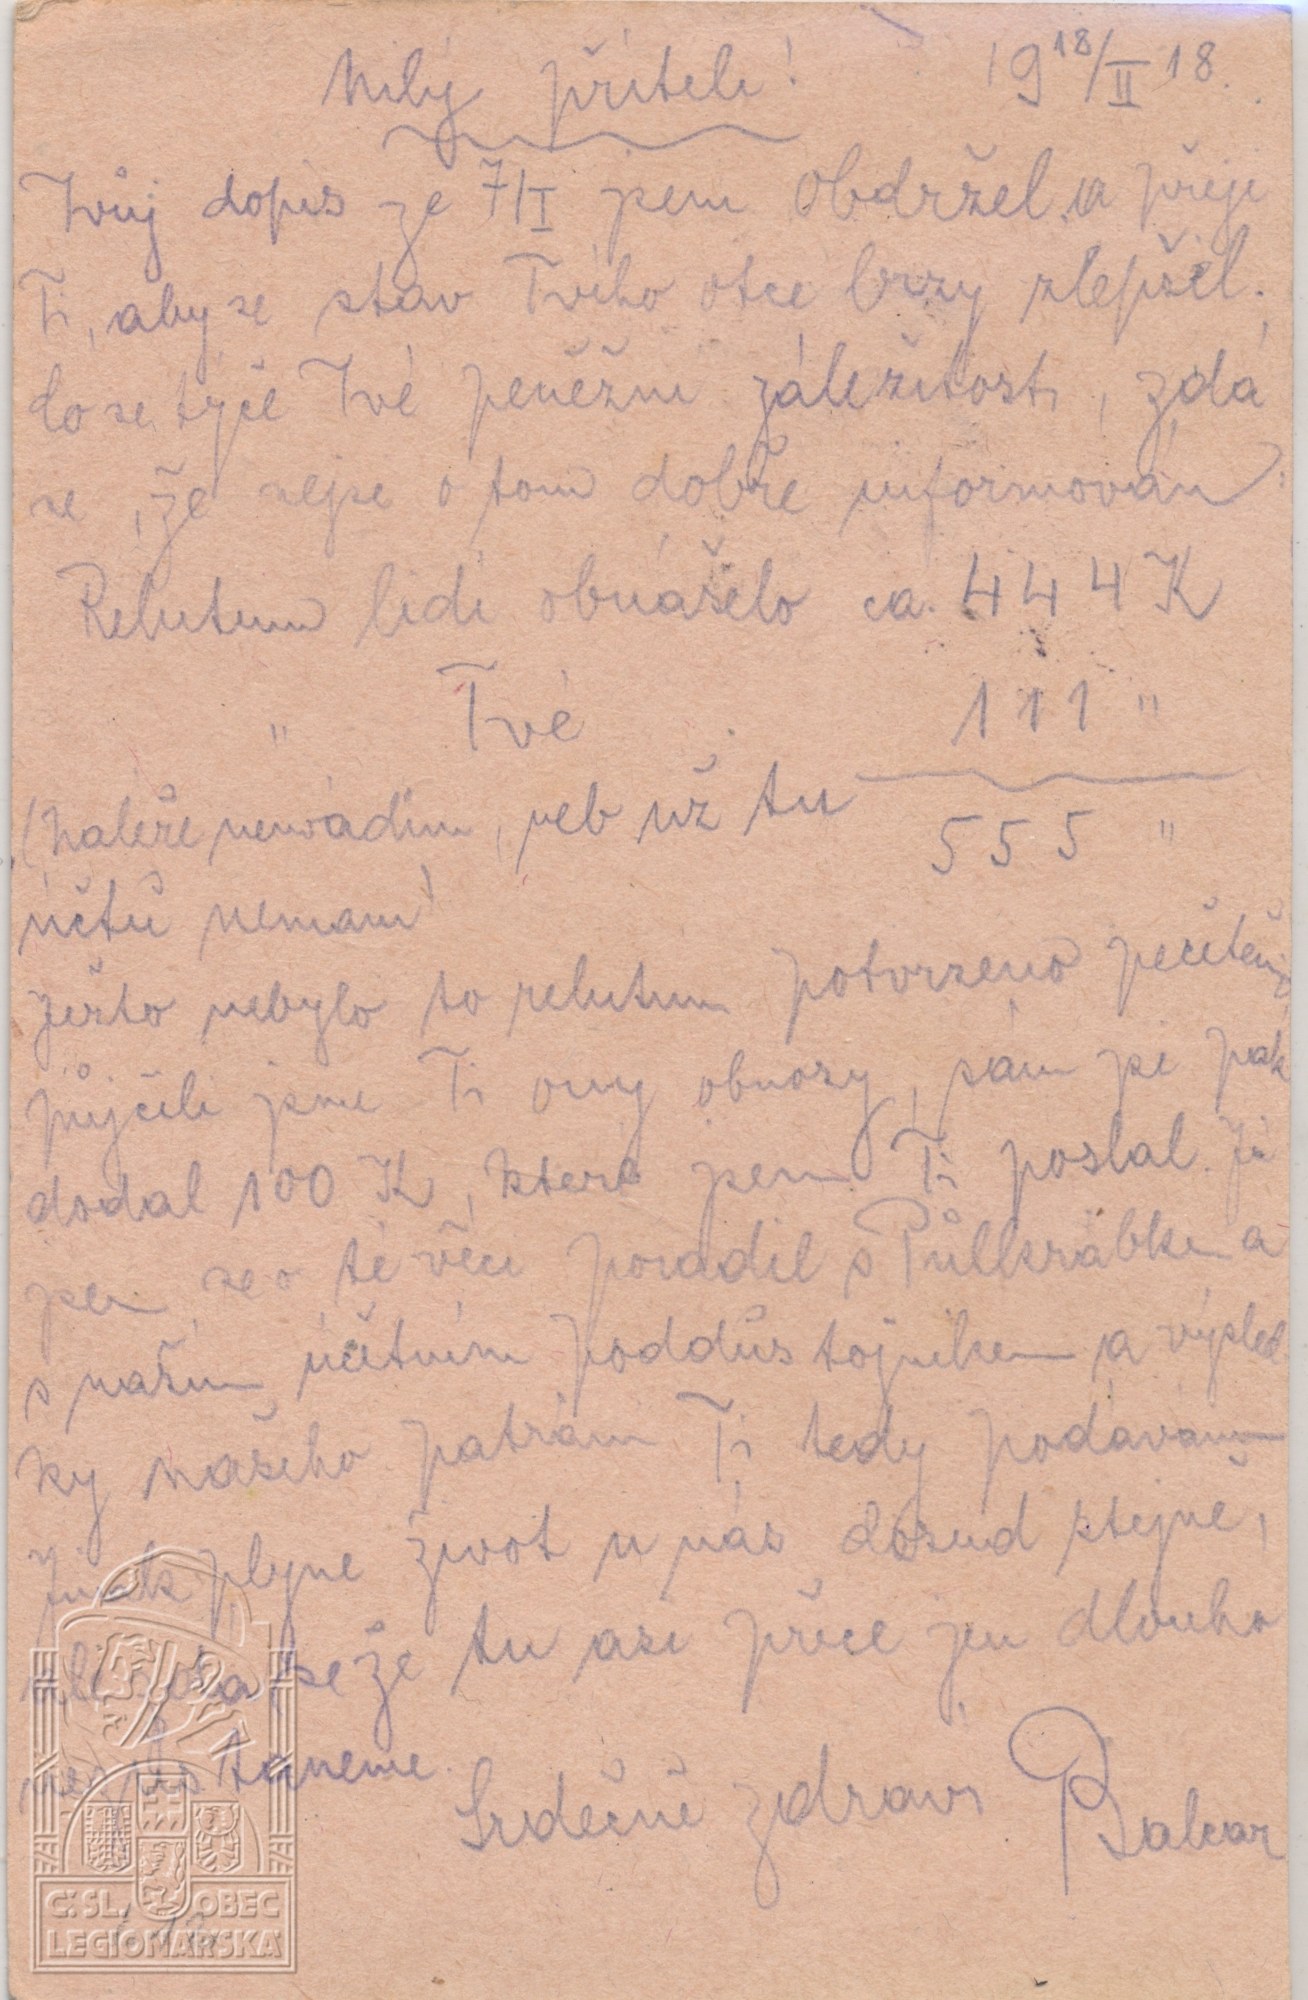 Milý příteli! 19 18/II 18.
Tvůj dopis ze 7/I jsem obdržel a přeji
Ti, aby se stav Tvého otce brzy zlepšil.
Co se týče Tvé peněžní záležitosti, zdá
se, že nejse o tom dobře informován:
Relutum lidí obnášelo ca. 444 K
" Tvé 111 "
(haléře neuvádím, neb už tu 555 "
účtů nemám)
Ježto nebylo to relutum potvrzeno
půjčili jsme Ti ony obnosy, sám jsi pak
dodal 100 K, které jsem Ti poslal. Já
jsem se o té věci poradil s Půlkrábkem a
s naším účetním poddůstojníkem a výsled
ky našeho pátrání Ti tedy podávám
Jinak plyne život u nás dosud stejně,
zdá se že tu asi přece jen dlouho
nezůstaneme.
Srdečně zdraví Balcar
Č.SL. OBEC
LEGIONÁŘSKÁ